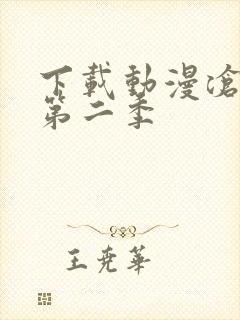 下載動漫滄
第二季
王堯華